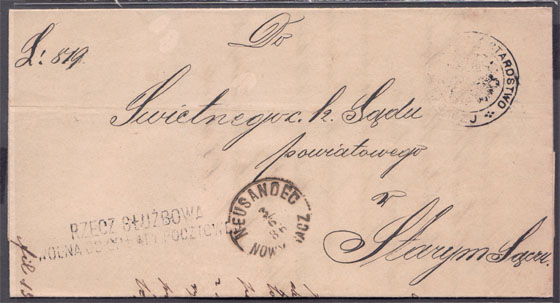 L: 819.
Do
Świetnego c. k. Sądu
powiatowego
w
Starym Sączu
STAROSTWO
RZECZ SŁUŻBOWA
WOLNA OD OPŁATY POCZTOWEJ
NEUSANDEC
NOWY SĄCZ